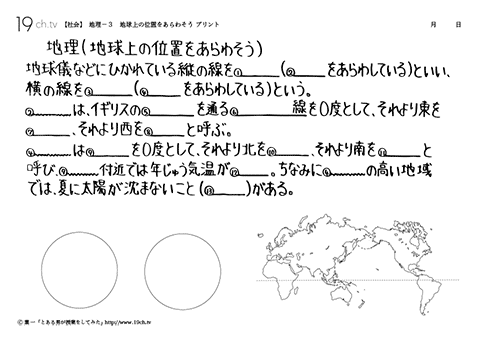 19 ch.tv 【社会】 地理－3 地球上の位置をあらわそう プリント 月 日
地理(地球上の位置をあらわそう)
地球儀などにひかれている縦の線を (をあらわしている)といい、
横の線を (をあらわしている)という。
は、イギリスの を通る 線を0度として、それより東を
、それより西を と呼ぶ。
は を0度として、それより北を 、それより南を と
呼び、 付近では年じゅう気温が 。ちなみに の高い地域
では、夏に太陽が沈まないこと( )がある。
© 葉一「とある男が授業をしてみた」http://www.19ch.tv